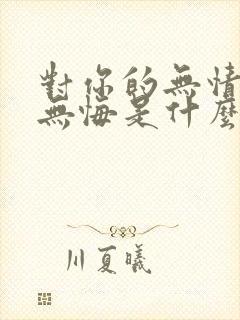 對你的無情
無悔是什麼
川夏曦